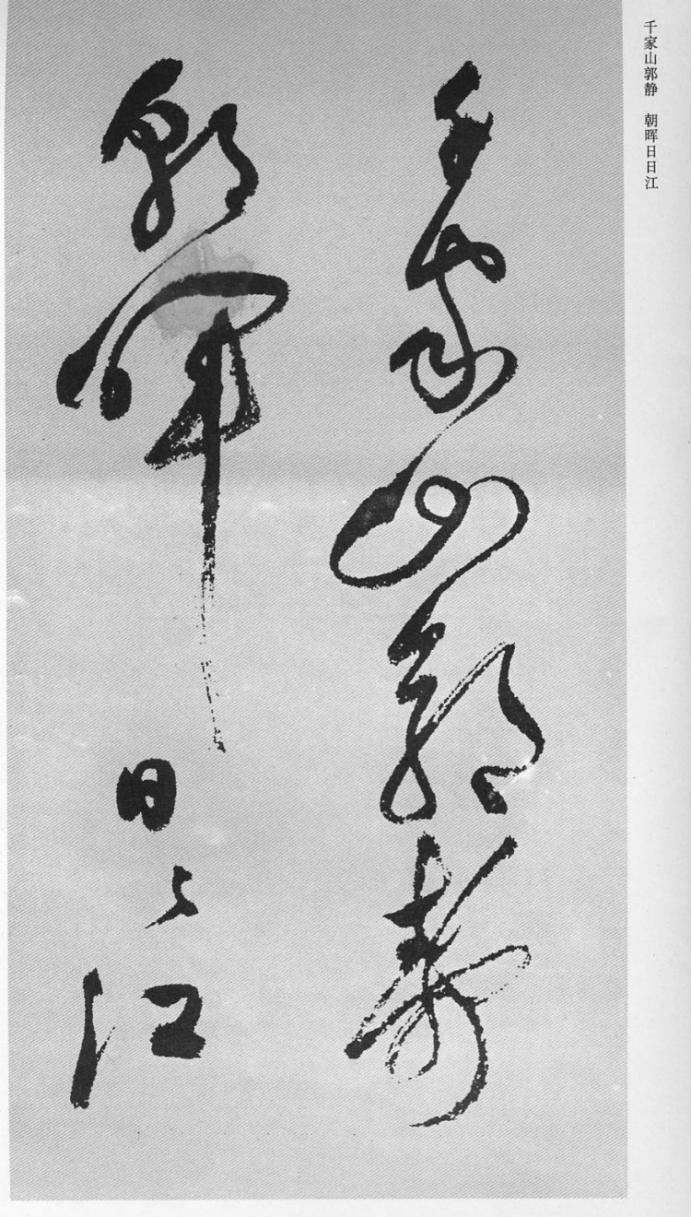 千家山郭静 朝晖日日江
千家山郭静
朝晖日〻江